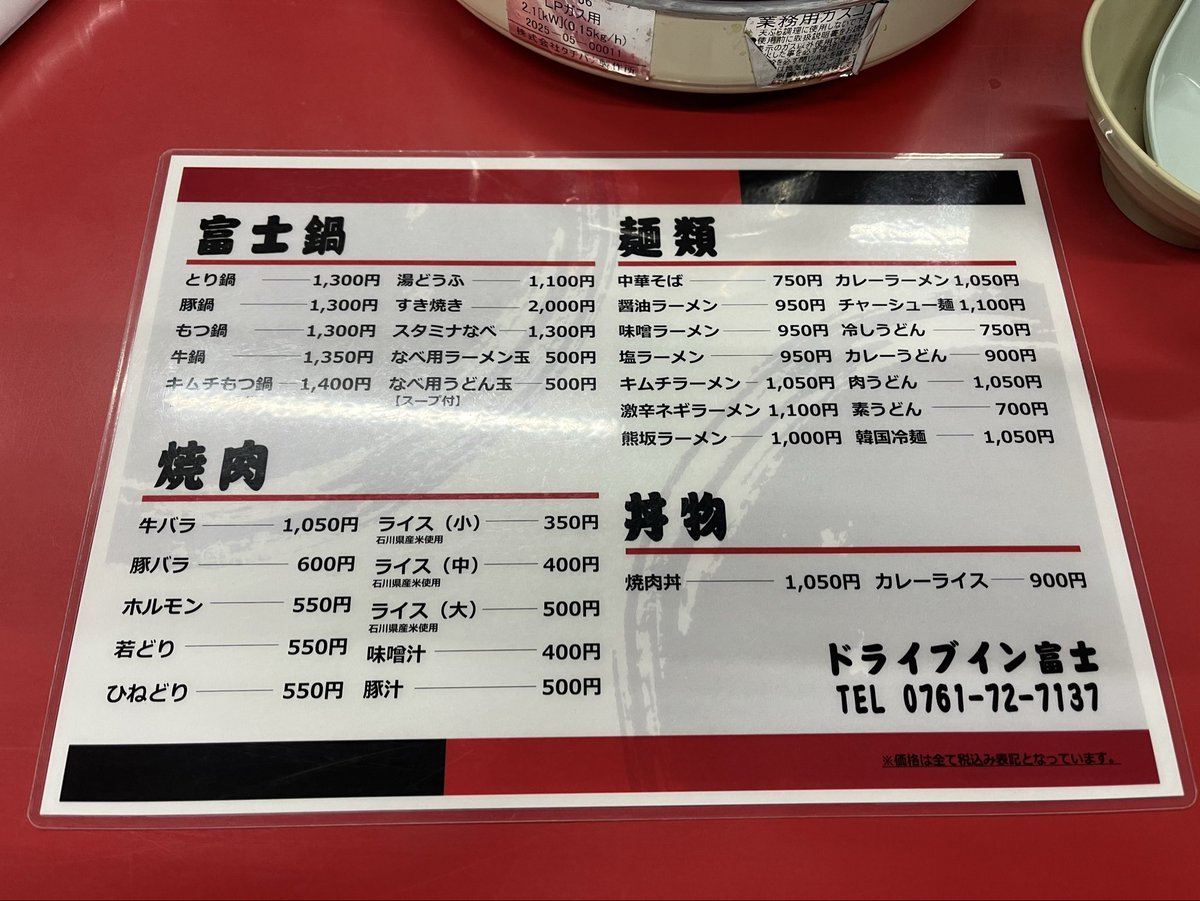 LPガス用
2.1[kW](0.15kg/h)
2025-05-00011
業務用ガスコ
富士鍋
とり鍋 1,300円 湯どうふ 1,100円
豚鍋 1,300円 すき焼き 2,000円
もつ鍋 1,300円 スタミナなべ 1,300円
牛鍋 1,350円 なべ用ラーメン玉 500円
キムチもつ鍋 1,400円 なべ用うどん玉 500円
【スープ付】
焼肉
牛バラ 1,050円 ライス（小） 350円
石川県産米使用
豚バラ 600円 ライス（中） 400円
石川県産米使用
ホルモン 550円 ライス（大） 500円
石川県産米使用
若どり 550円 味噌汁 400円
ひねどり 550円 豚汁 500円
麺類
中華そば 750円 カレーラーメン 1,050円
醤油ラーメン 950円 チャーシュー麺 1,100円
味噌ラーメン 950円 冷しうどん 750円
塩ラーメン 950円 カレーうどん 900円
キムチラーメン 1,050円 肉うどん 1,050円
激辛ネギラーメン 1,100円 素うどん 700円
熊坂ラーメン 1,000円 韓国冷麺 1,050円
丼物
焼肉丼 1,050円 カレーライス 900円
ドライブイン富士
TEL 0761-72-7137
※価格は全て税込み表記となっています。